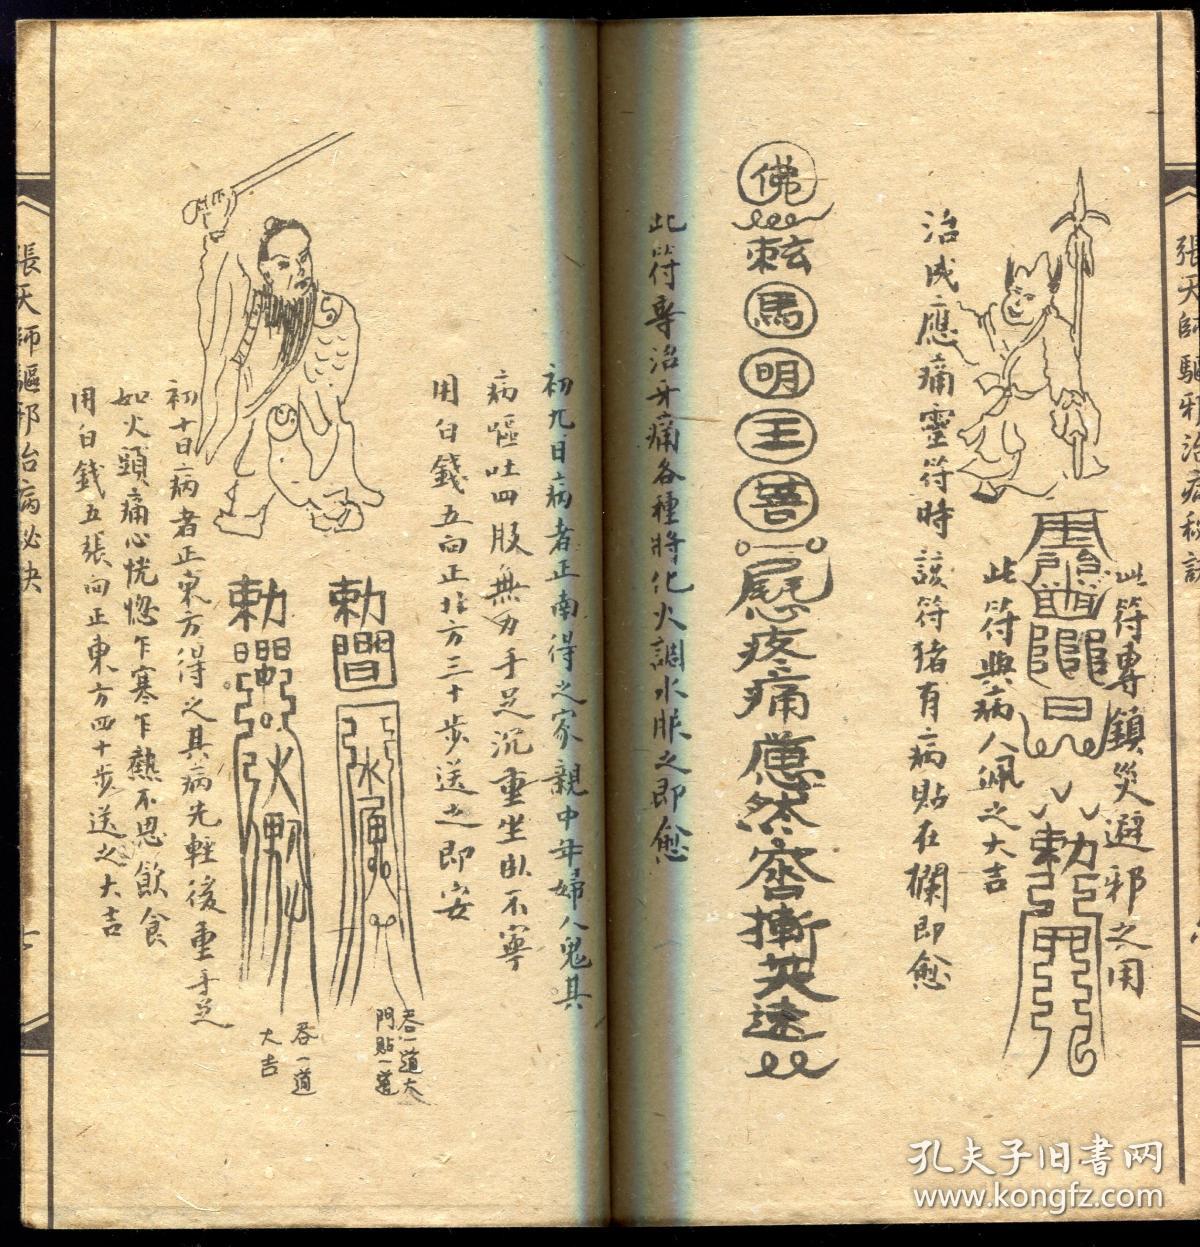 張天師驅邪治病秘訣
此符專鎮災避邪之用
此符與病人佩之大吉
勅
治成應痛靈符時該符猪有病貼在欄即愈
佛
馬
明
王
菩
疼痛
此符專治牙痛各種將化火調水服之即愈
初九日病者正南得之家親中年婦人鬼其
病嘔吐四肢無力手足沉重坐臥不寧
用白錢五向正北方三十步送之即安
勅
吞一道大
門貼一道
勅
火
吞一道
大吉
初十日病者正東方得之其病先輕後重手足
如火頭痛心恍惚乍寒乍熱不思飲食
用白錢五張向正東方四十步送之大吉
張天師驅邪治病秘訣
七
孔夫子旧书网
www.kongfz.com